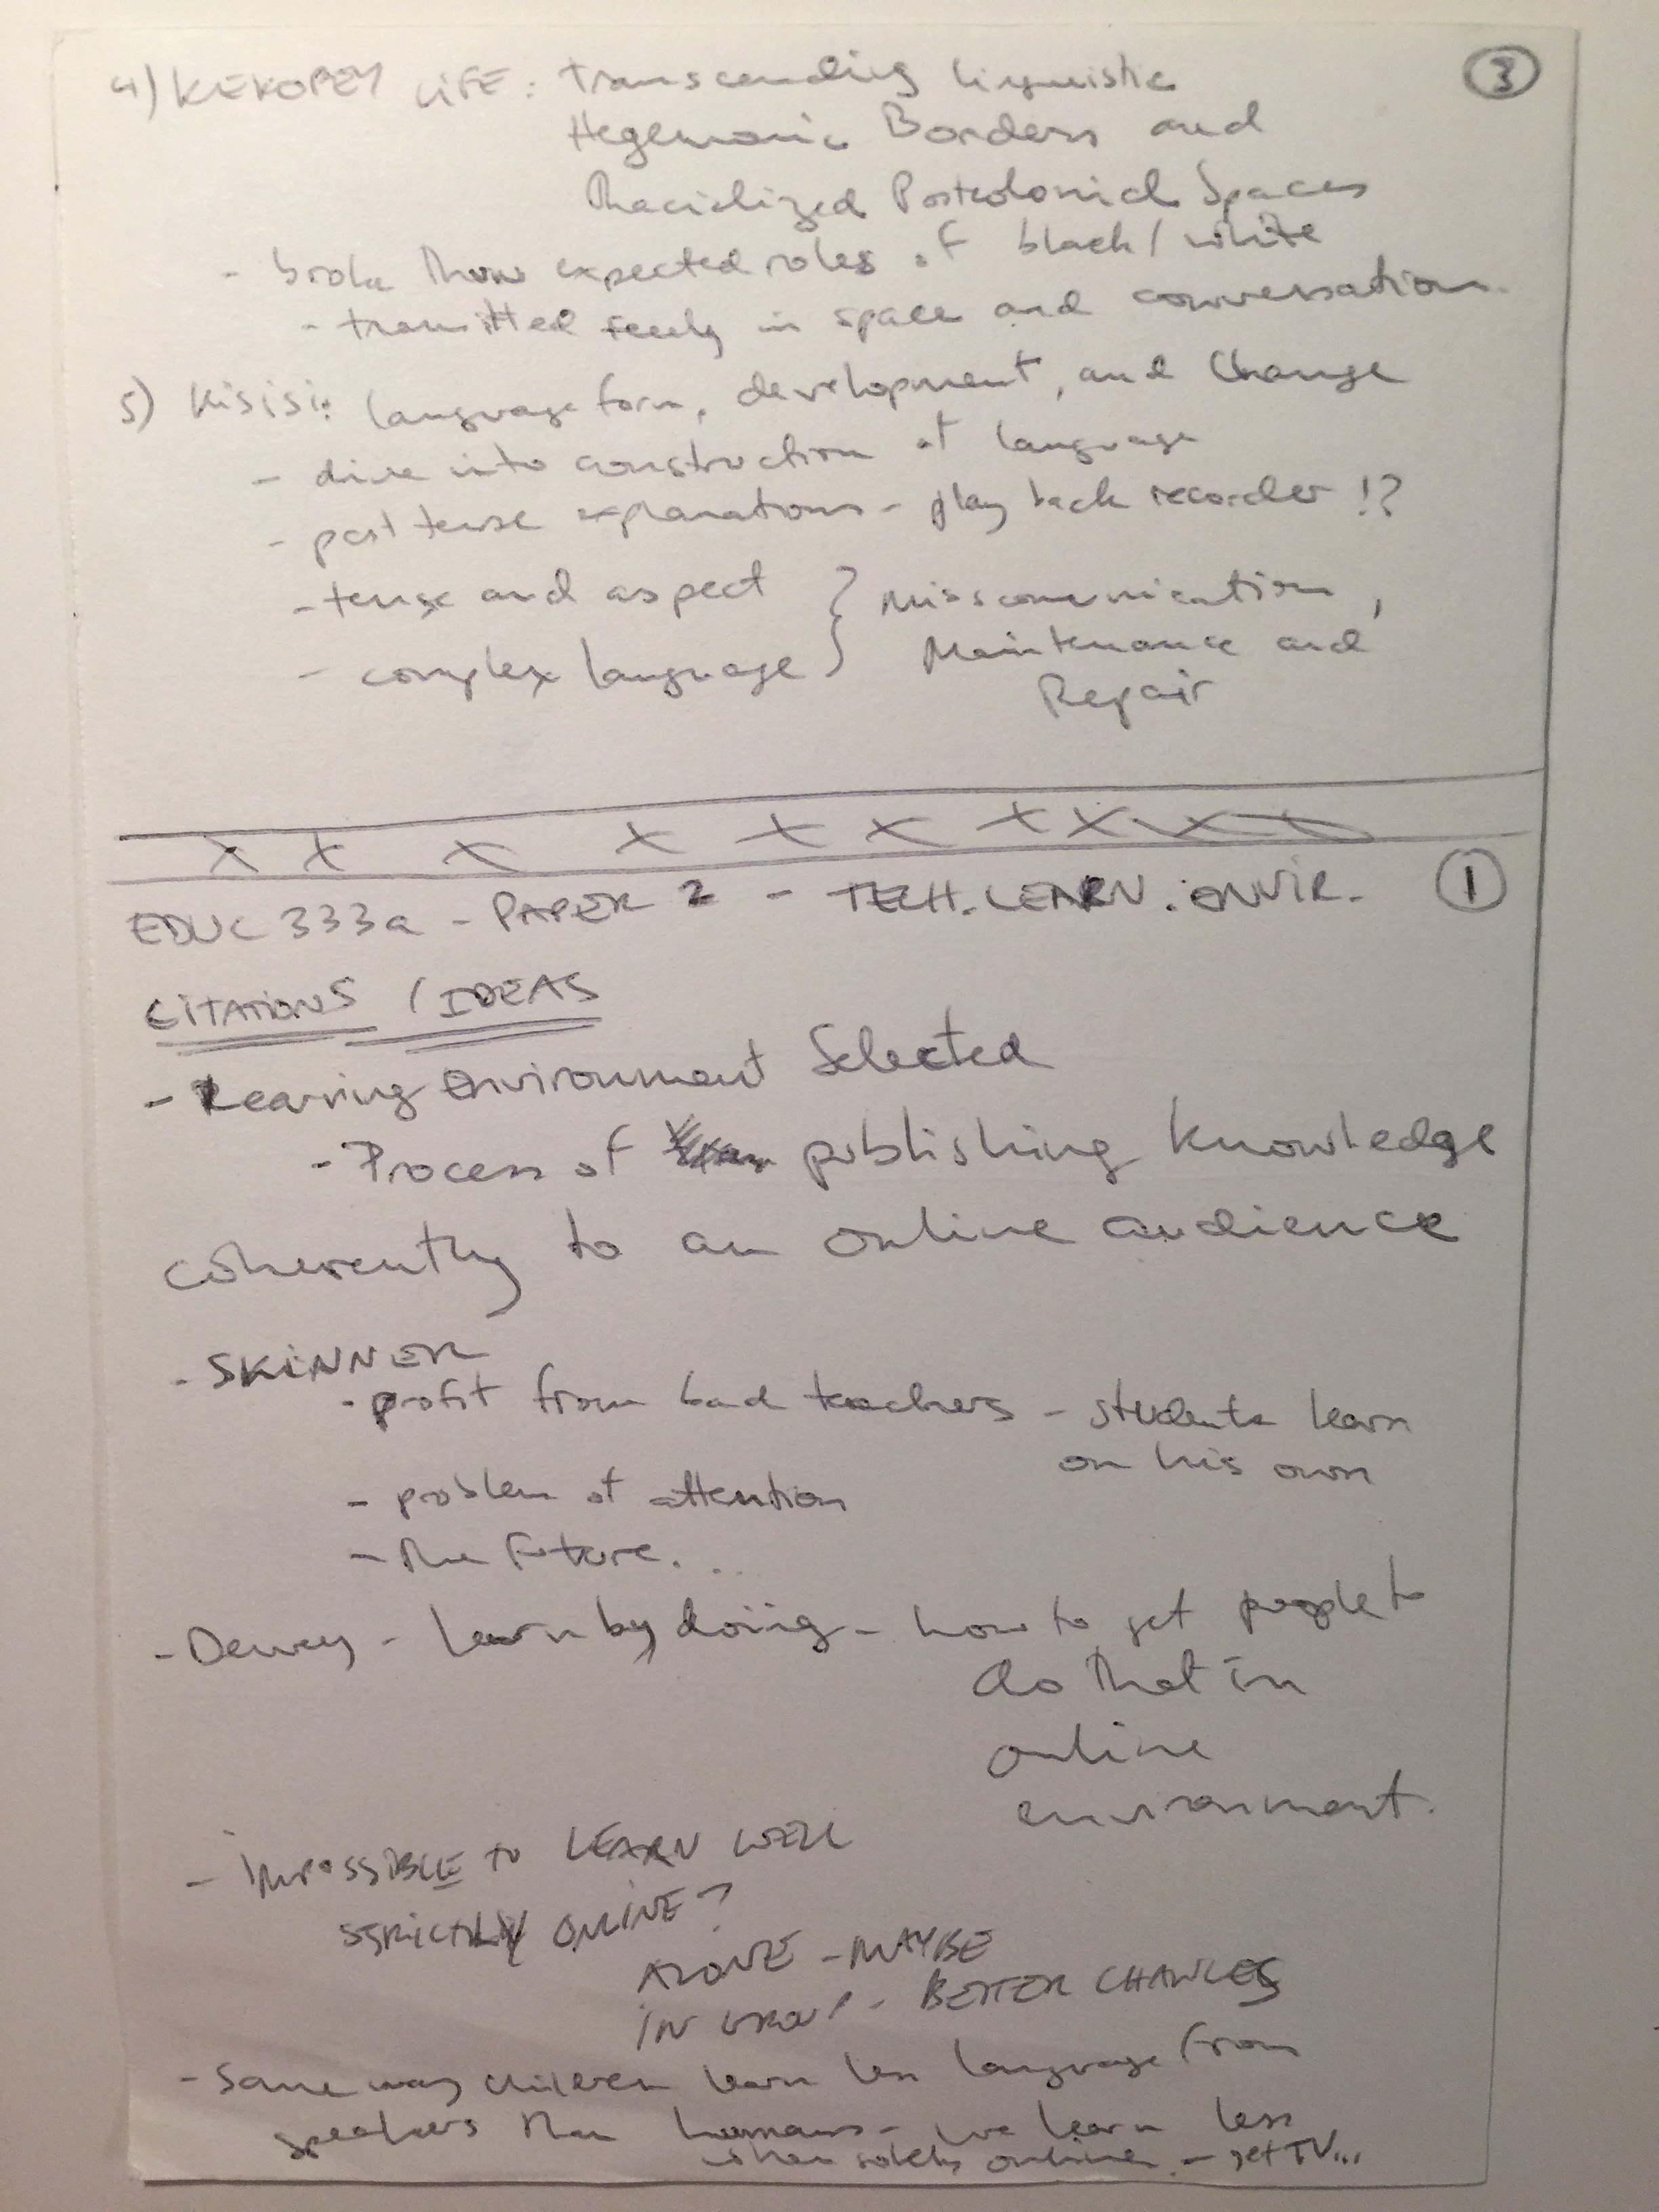 4) KEKOPEY LiFE: transcending linguistic ③
Hegemonic Borders and
Racialized Postcolonial Spaces
- broke expected roles of black / white
- transitted freely in space and conversation.
5) Kisisi: language form, development, and Change
- dive into construction of language
- past tense explanations - play back recorder !?
- tense and aspect } Misscomunication,
- complex language } Maintenance and
Repair
X X X X X X X X X X
EDUC 333a - PAPER 2 - TECH. LEARN. ENVIR. ①
CITATIONS / IDEAS
- Learning environment Selected
- Process of publishing knowledge
coherently to an online audience
- SKINNER
- profit from bad teachers - students learn
on his own
- problem of attention
- The Future...
- Dewey - learn by doing - how to get people to
do that in
online
environment.
- IMPOSSIBLE to LEARN WELL
STRICTLY ONLINE?
ALONE - MAYBE
IN GROUP - BETTER CHANCES
- Same way children learn less language from
speakers than humans - we learn less
when solely online - get TV...